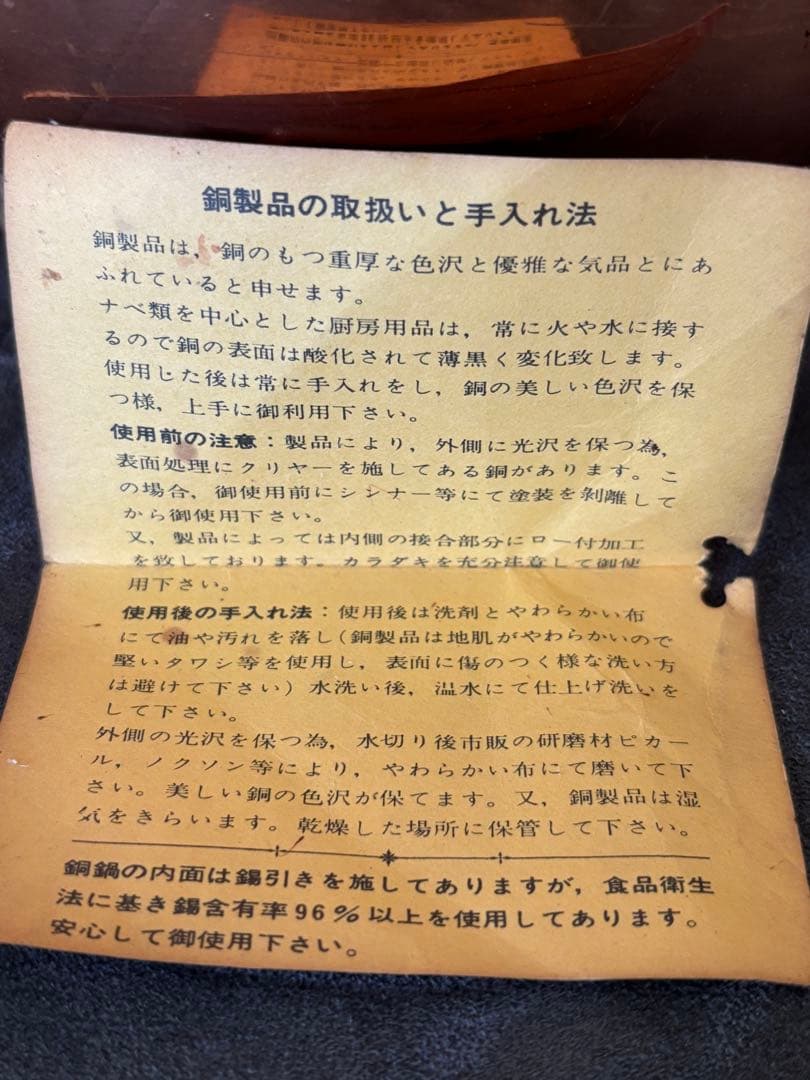 銅製品の取扱いと手入れ法
銅製品は，銅のもつ重厚な色沢と優雅な気品とにあ
ふれていると申せます。
ナベ類を中心とした厨房用品は，常に火や水に接す
るので銅の表面は酸化されて薄黒く変化致します。
使用した後は常に手入れをし，銅の美しい色沢を保
つ様，上手に御利用下さい。
使用前の注意：製品により，外側に光沢を保つ為，
表面処理にクリヤーを施してある銅があります。こ
の場合，御使用前にシンナー等にて塗装を剥離して
から御使用下さい。
又，製品によっては内側の接合部分にロー付加工
を致しております。カラダキを充分注意して御使
用下さい。
使用後の手入れ法：使用後は洗剤とやわらかい布
にて油や汚れを落し（銅製品は地肌がやわらかいので
堅いタワシ等を使用し，表面に傷のつく様な洗い方
は避けて下さい）水洗い後，温水にて仕上げ洗いを
して下さい。
外側の光沢を保つ為，水切り後市販の研磨材ピカー
ル，ノクソン等により，やわらかい布にて磨いて下
さい。美しい銅の色沢が保てます。又，銅製品は湿
気をきらいます。乾燥した場所に保管して下さい。
銅鍋の内面は錫引きを施してありますが，食品衛生
法に基き錫含有率96％以上を使用してあります。
安心して御使用下さい。